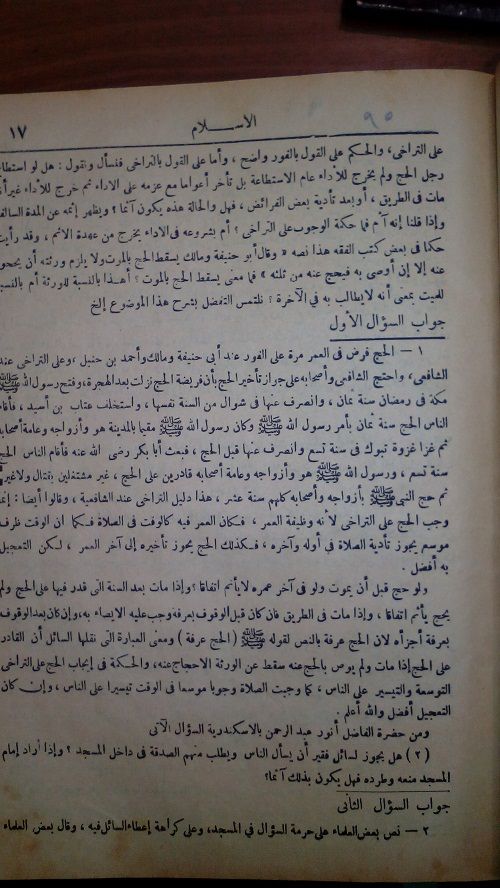 ٩٥
١٧ الاسلام
على التراخى، والحكم على القول بالفور واضح، وأما على القول بالتراخى فنسأل ونقول: هل لو استطاع
رجل الحج ولم يخرج للأداء عام الاستطاعة بل تأخر أعواما مع عزمه على الاداء ثم خرج للأداء غير أنه
مات فى الطريق، أو بعد تأدية بعض الفرائض، فهل والحالة هذه يكون آثما؟ ويظهر إثمه عن المدة السالفة
وإذا قلنا إنه آثم فما حكمة الوجوب على التراخى؟ أم بشروعه فى الاداء يخرج من عهدة الاثم، وقد رأيت
حكما فى بعض كتب الفقه هذا نصه « وقال أبو حنيفة ومالك يسقط الحج بالموت ولا يلزم ورثته أن يحجوا
عنه إلا إن أوصى به فيحج عنه من ثلثه » فما معنى يسقط الحج بالموت؟ أهذا بالنسبة للورثة أم بالنسبة
للميت بمعنى أنه لا يطالب به فى الآخرة؟ نلتمس التفضل بشرح هذا الموضوع إلخ
جواب السؤال الأول
١ — الحج فرض فى العمر مرة على الفور عند أبى حنيفة ومالك وأحمد بن حنبل، وعلى التراخى عند
الشافعى، واحتج الشافعى وأصحابه على جواز تأخير الحج بأن فريضة الحج نزلت بعد الهجرة، وفتح رسول الله ﷺ
مكة فى رمضان سنة ثمان، وانصرف عنها فى شوال من السنة نفسها، واستخلف عتاب بن أسيد، فأقام
الناس الحج سنة ثمان بأمر رسول الله ﷺ وكان رسول الله ﷺ مقيما بالمدينة هو وأزواجه وعامة أصحابه
ثم غزا غزوة تبوك فى سنة تسع وانصرف عنها قبل الحج، فبعث أبا بكر رضى الله عنه فأقام الناس الحج
سنة تسع، ورسول الله ﷺ هو وأزواجه وعامة أصحابه قادرين على الحج، غير مشتغلين بقتال ولا غيره
ثم حج النبى ﷺ بأزواجه وأصحابه كلهم سنة عشر، هذا دليل التراخى عند الشافعية، وقالوا أيضا: إنما
وجب الحج على التراخى لأنه وظيفة العمر، فكان العمر فيه كالوقت فى الصلاة فكما ان الوقت ظرف
موسع يجوز تأدية الصلاة فى أوله وآخره، فكذلك الحج يجوز تأخيره إلى آخر العمر، لكن التعجيل
به أفضل.
ولو حج قبل أن يموت ولو فى آخر عمره لا يأثم اتفاقا؟ وإذا مات بعد السنة التى قدر فيها على الحج ولم
يحج يأثم اتفاقا، وإذا مات فى الطريق فان كان قبل الوقوف بعرفة وجب عليه الايصاء به، وإن كان بعد الوقوف
بعرفة أجزأه لان الحج عرفة بالنص لقوله ﷺ (الحج عرفة) ومعنى العبارة التى نقلها السائل أن القادر
على الحج إذا مات ولم يوص بالحج عنه سقط عن الورثة الاحجاج عنه، والحكمة فى إيجاب الحج على التراخى
التوسعة والتيسير على الناس، كما وجبت الصلاة وجوبا موسعا فى الوقت تيسيرا على الناس، وإن كان
التعجيل أفضل والله أعلم.
ومن حضرة الفاضل أنور عبد الرحمن بالاسكندرية السؤال الآتى
(٢) هل يجوز لسائل فقير أن يسأل الناس ويطلب منهم الصدقة فى داخل المسجد؟ وإذا أراد إمام
المسجد منعه وطرده فهل يكون بذلك آثما؟
جواب السؤال الثانى
٢ — نص بعض العلماء على حرمة السؤال فى المسجد، وعلى كراهة إعطاء السائل فيه، وقال بعض العلماء